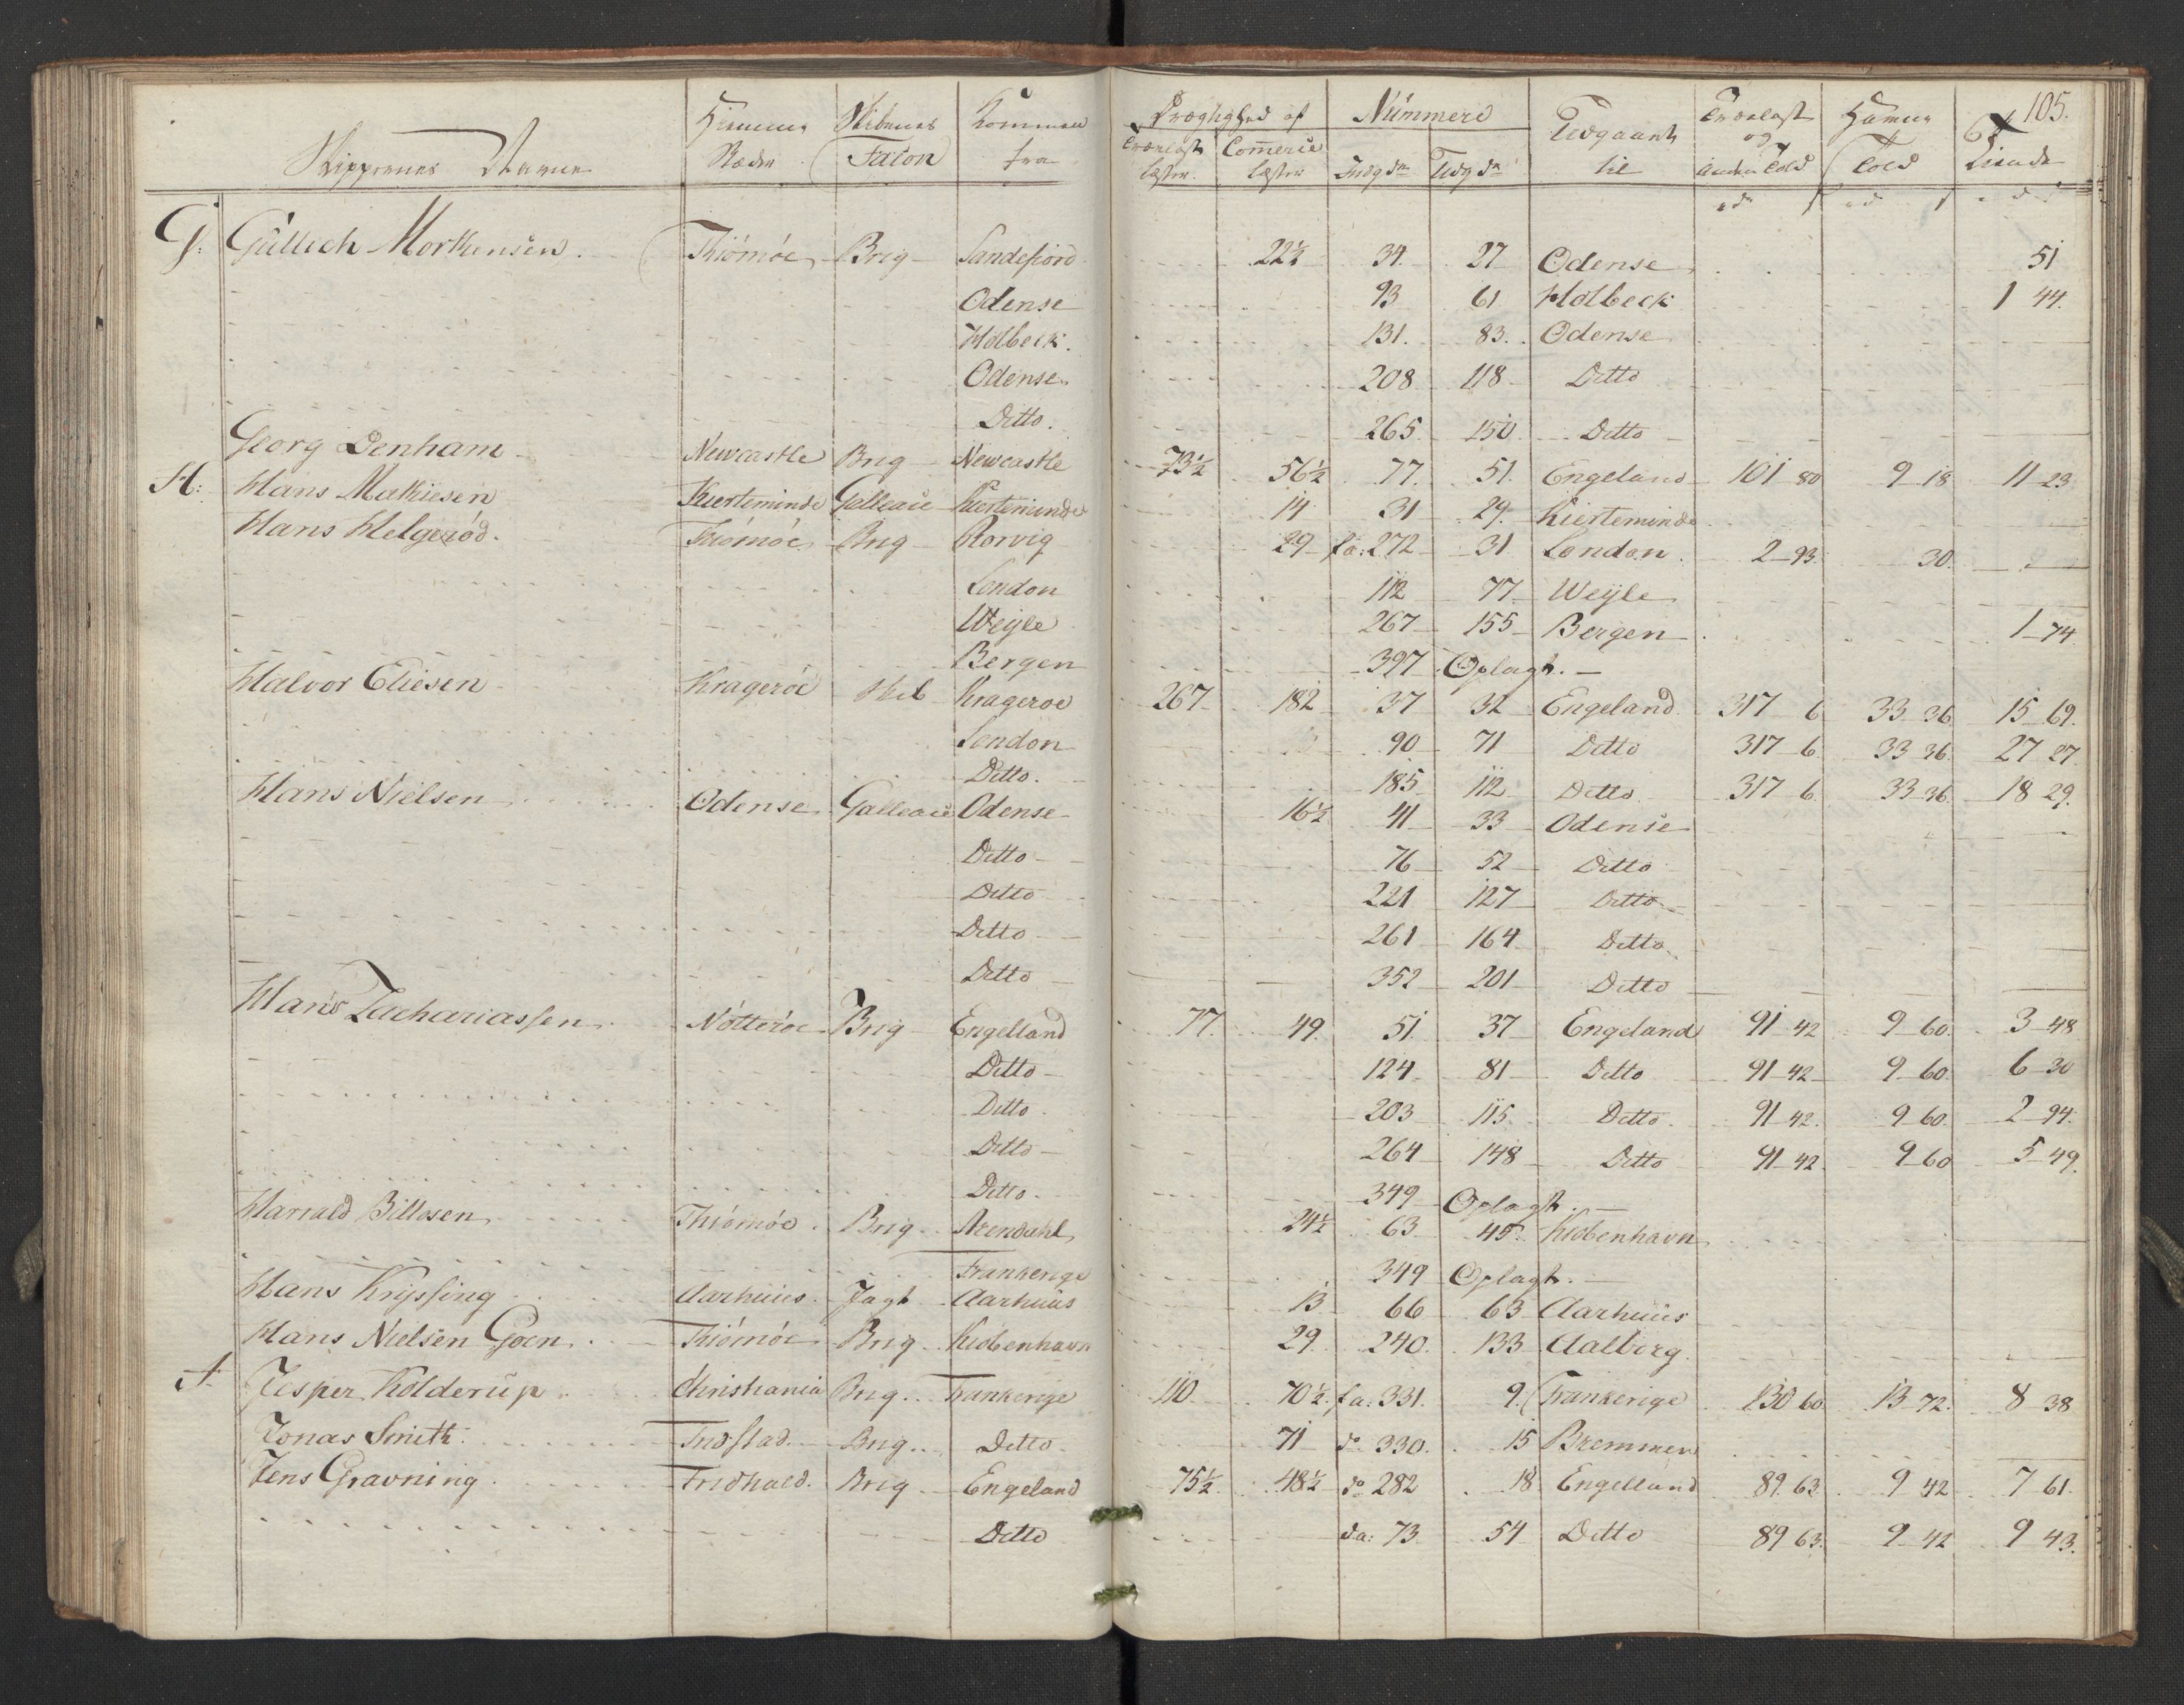 105.
Skippernes Navne | Hiemme Stæder | Skibenes Facon | Kommen fra | Drægtighed af Trælast Læster | Commerce Læster | Nummere Indg: | Udg: | Udgaaet til | Trælast og anden Told | Told | Tiende
G: Gullich Morthensen. | Thiömöe | Brig | Sandefiord | 22½ | 34. | 27 | Odense | 51
Odense | 93 | 61 | Holbeck | 1 44.
Holbeck. | 131. | 83. | Odense
Odense | 208 | 118 | Ditto
Ditto. | 265. | 150. | Ditto
Georg Denham | Newcastle | Brig | Newcastle | 73½ | 56½ | 77. | 51. | Engeland | 101 80 | 9 18 | 11 23
H: Hans Mathiesen | Kierteminde | Galleace | Kierteminde | 14 | 31 | 29. | Kierteminde
Hans Helgeröd. | Thiömöe | Brig | Rorvig | 29 | fa: 272 | 31 | London. | 2 93. | 30.
London | 112 | 77 | Weyle
Weyle | 267 | 155 | Bergen | 1 74
Bergen | 397 | Oplagt.
Halvor Eliesen | Krageröe | Skib | Krageroe | 267 | 182 | 37 | 32 | Engeland | 317 6 | 33 36 | 15 69.
London | 90 | 71 | Ditto | 317 6 | 33 36. | 27 27.
Ditto. | 185 | 112 | Ditto | 317 6 | 33 36. | 18 29.
Hans Nielsen | Odense | Galleace | Odense | 16½ | 41 | 33 | Odense
Ditto | 76 | 52 | Ditto
Ditto | 221 | 127 | Ditto
Ditto | 261 | 164 | Ditto
Ditto | 352 | 201 | Ditto
Hans Zachariassen | Nötteröe | Brig | Engelland | 77. | 49. | 51. | 37 | Engeland | 91 42 | 9 60. | 3 48
Ditto | 124 | 81 | Ditto | 91 42 | 9 60. | 6 30
Ditto | 203 | 115. | Ditto. | 91 42. | 9 60. | 2 94.
Ditto | 264 | 148 | Ditto | 91 42. | 9 60 | 5 49.
Ditto. | 349 | Oplagt.
Harrald Billesen | Thiömöe. | Brig | Arendahl | 24½ | 63 | 45. | Kiöbenhavn
Frankerige | 349 | Oplagt.
Hans Kryssing | Aarhuus. | Jagt | Aarhuus | 13 | 66 | 63 | Aarhuus
Hans Nielsen Goen. | Thiömöe | Brig | Kiöbenhavn | 29. | 240. | 133 | Aalborg.
I Jesper Kolderup | Christiania | Brig | Frankerige | 110 | 70½ | fa: 331. | 9. | Frankerige | 130 60 | 13 72. | 8 38
Jonas Smith | Brig | Ditto | 71 | do 330. | 15 | Bremmen
Jens Gravning | Fridhald. | Brig | Engeland | 75½ | 48½ | do 282 | 18 | Engelland | 89. 63 | 9 42 | 7 61.
Ditto | da: 73. | 54 | Ditto | 89 63. | 9 42 | 9 43.